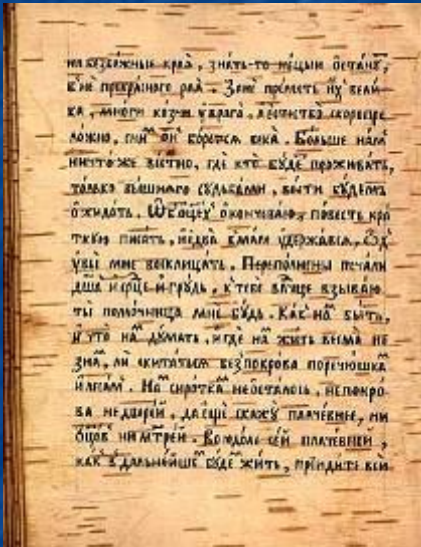 на безбѣжные края, знать-то нецыи останꙋ,
внѣ прекраснаго рая. Зане прелесть их вели-
ка, многи козни ꙋ врага,
ложно, сим он борется века. Больше нам
ничтоже вестно, где кто бꙋде проживать,
только вышняго сꙋдьбами, вести бꙋдемъ
ожидать. Вобщеꙋ окончеваю, повесть кра
ткꙋю писать, едва слезы ꙋдержався,
ꙋвы мне восклицать. Переполнены печали
дꙋша и срце и грꙋдь, к тебе вопще взываю
ты помощница мне бꙋдь. Как нам быть,
и что нам дꙋмать, и где нам жить весма не
знаѣ, ли скитаться без покрова по речꙋшкам
и лесам. На сиротка неосталось, ни покро
ва не дверей, да еще скажꙋ плачевнее, ни
отцов ни мтрей. Во юдоле сей плачевней,
как в дальнейше бꙋде жить, приидите вси